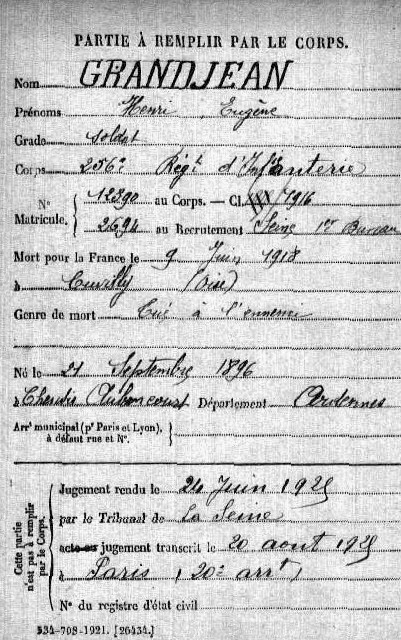 PARTIE À REMPLIR PAR LE CORPS.
Nom GRANDJEAN
Prénoms Henri Eugène
Grade soldat
Corps 256e Régt d'Infanterie
N° Matricule. 12890 au Corps. — Cl. 1916
2694 au Recrutement Seine 1er Bureau
Mort pour la France le 9 Juin 1918
à Cuvilly (Oise)
Genre de mort Tué à l'ennemi
Né le 21 Septembre 1896
à Auboncourt Département Ardennes
Arrt municipal (pr Paris et Lyon),
à défaut rue et N°.
Cette partie n'est pas à remplir par le Corps.
Jugement rendu le 24 Juin 1921
par le Tribunal de La Seine
acte ou jugement transcrit le 20 août 1921
à Paris (20e arrt)
N° du registre d'état civil
534-708-1921. [26434.]